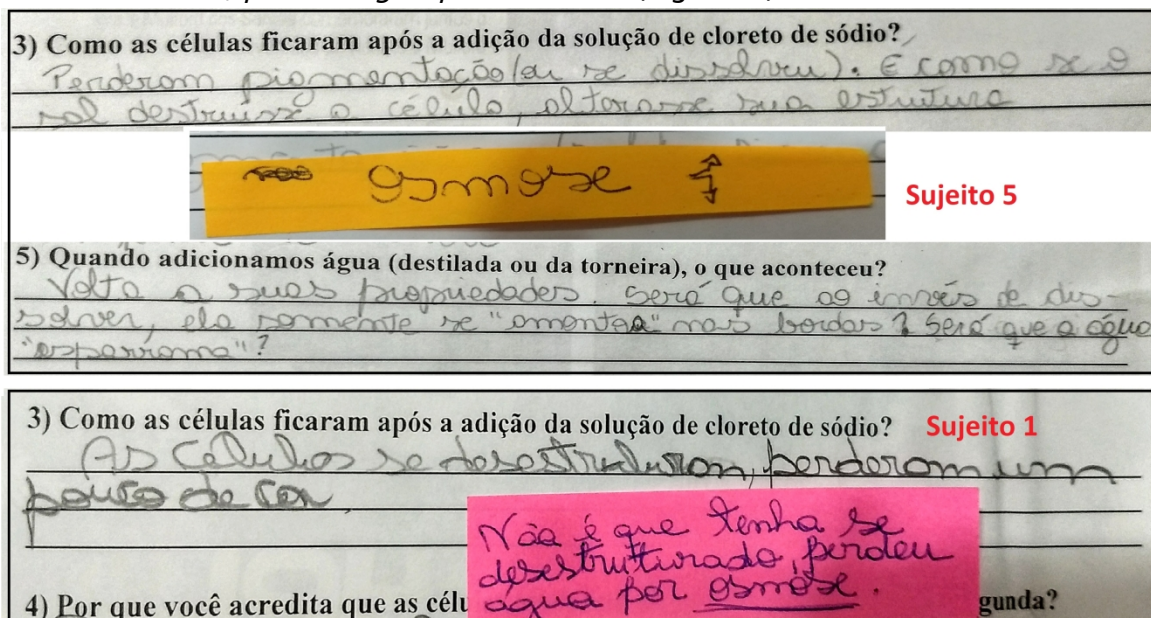 3) Como as células ficaram após a adição da solução de cloreto de sódio?
Perderam pigmentação (ou se dissolveu). É como se o
sal destruísse a célula, alterasse sua estrutura
osmose
Sujeito 5
5) Quando adicionamos água (destilada ou da torneira), o que aconteceu?
Volta a suas propriedades. Será que ao invés de dis-
solver, ela somente se "amontoa" nas bordas? Será que a água
"esparrama"?
3) Como as células ficaram após a adição da solução de cloreto de sódio?
Sujeito 1
As células se desestruturon, perderam um
pouco de cor
Não é que tenha se
desestruturado, perdeu
água por osmose.
4) Por que você acredita que as célu
gunda?